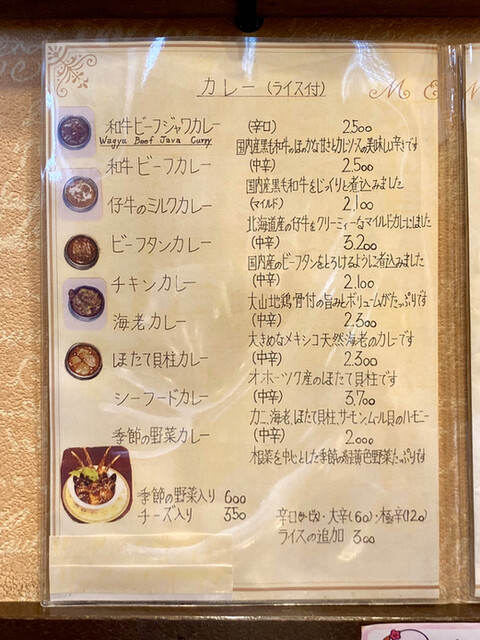 カレー (ライス付)
M E
和牛ビーフジャワカレー (辛口) 2.500
Wagyu Beef Java Curry
国内産黒毛和牛のほのかな甘さとカレーソースの美味しい辛さです
和牛ビーフカレー (中辛) 2.500
国内産黒毛和牛をじっくりと煮込みました
仔牛のミルクカレー (マイルド) 2.100
北海道産の仔牛をクリーミィーなマイルドカレーにしました
ビーフタンカレー (中辛) 3.200
国内産のビーフタンをとろけるように煮込みました
チキンカレー (中辛) 2.100
大山地鶏、骨付の旨みとボリュームがたっぷりです
海老カレー (中辛) 2.300
大きめなメキシコ天然海老のカレーです
ほたて貝柱カレー (中辛) 2.300
オホーツク産のほたて貝柱です
シーフードカレー (中辛) 3.700
カニ、海老、ほたて貝柱、サーモン、ムール貝のハーモニー
季節の野菜カレー (中辛) 2.000
根菜を中心とした季節の緑黄色野菜たっぷりです
季節の野菜入り 600
チーズ入り 350
辛口(サービス)・大辛(60)・極辛(120)
ライスの追加 300